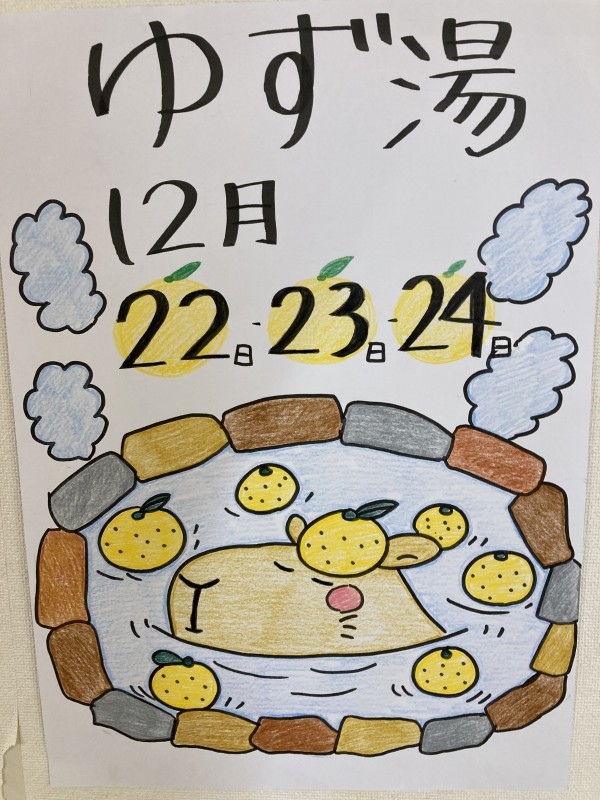 ゆず湯
12月
22日・23日・24日